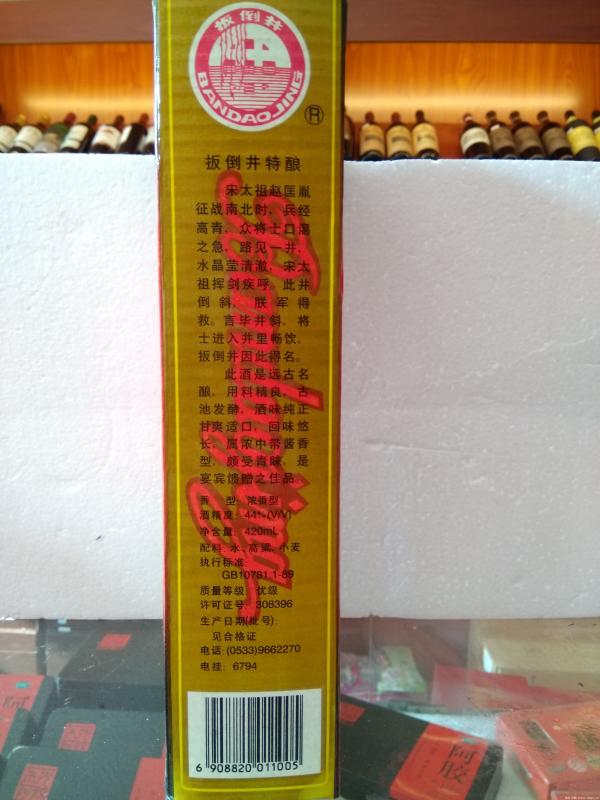 扳倒井
BANDAOJING
®
扳倒井特酿
宋太祖赵匡胤
征战南北时，兵经
高青，众将士口渴
之急，路见一井，
水晶莹清澈，宋太
祖挥剑疾呼，此井
倒斜，朕军得
救。言毕井斜，将
士进入井里畅饮，
扳倒井因此得名。
此酒是远古名
酿，用料精良，古
池发酵，酒味纯正
甘爽适口，回味悠
长，属浓中带酱香
型，颇受青睐，是
宴宾馈赠之佳品。
香 型：浓香型
酒精度：44%(V/V)
净含量：420mL
配料：水、高粱、小麦
执行标准：
GB10781.1-89
质量等级：优级
许可证号：308396
生产日期(批号)：
见合格证
电话：(0533)9662270
电挂：6794
6 908820 011005
阿胶